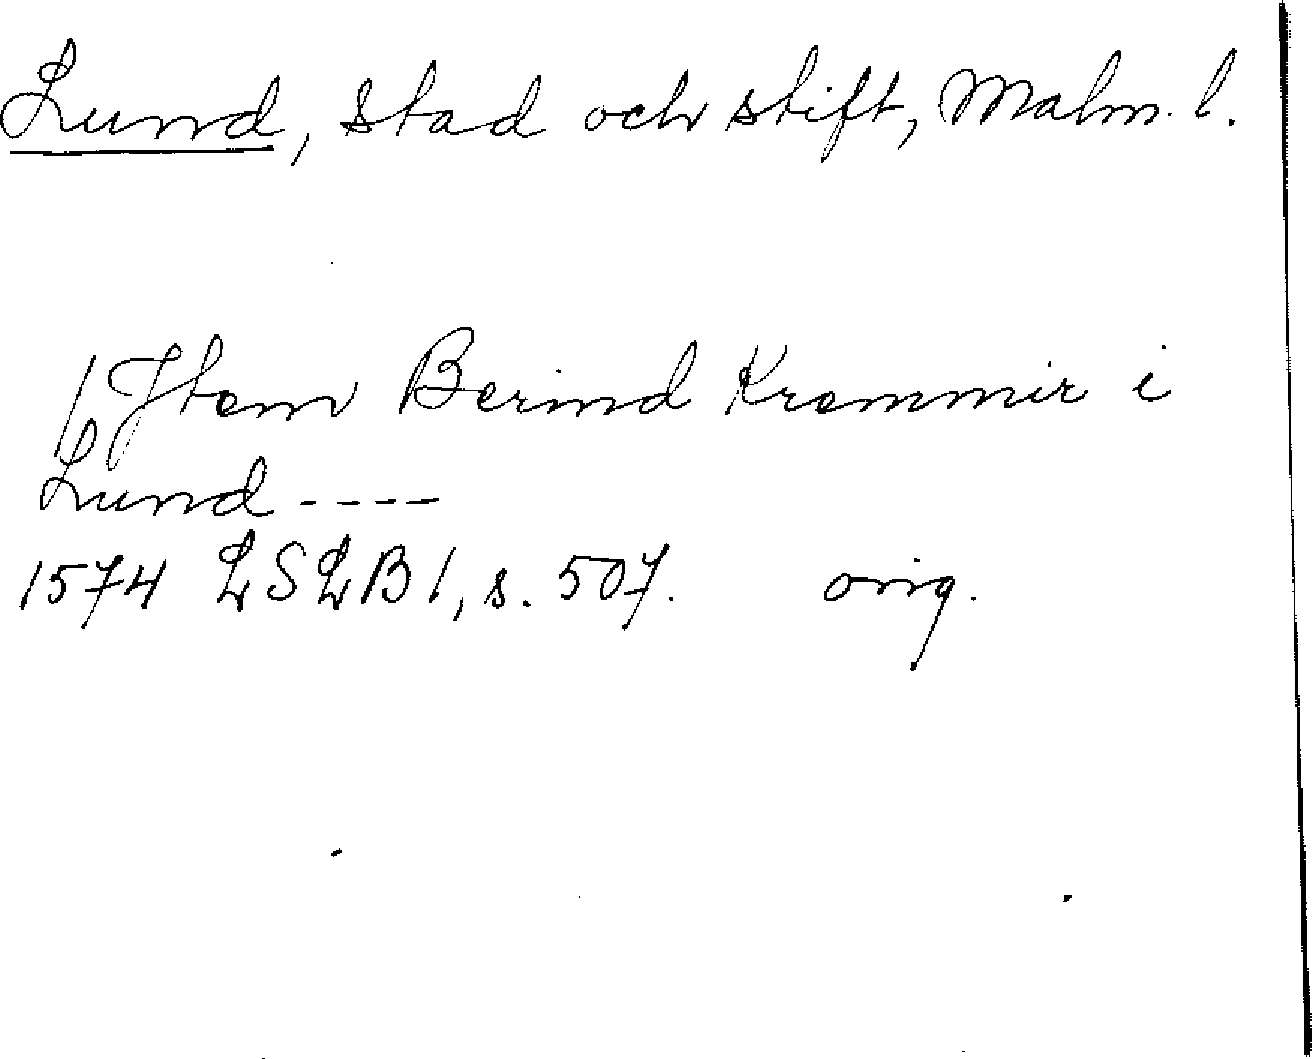 Lund, stad och stift, Malm. l.
/Item Berind Kremmir i
Lund ----
1574 LSLB 1, s. 507. orig.